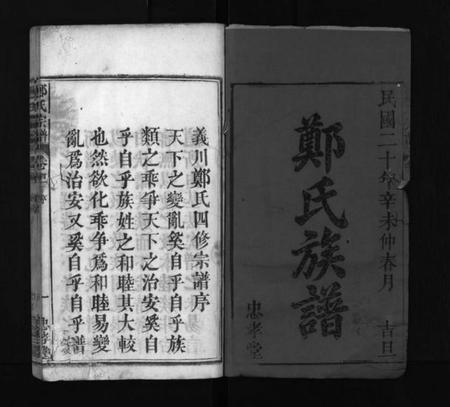 民國二十年辛未仲春月 吉旦
鄭氏族譜
忠孝堂
義川鄭氏四修宗譜序
天下之變亂奚自乎自乎族
類之乖爭天下之治安奚自
乎自乎族姓之和睦其大較
也然欲化乖爭為和睦易變
亂為治安又奚自乎自乎譜
鄭氏宗譜